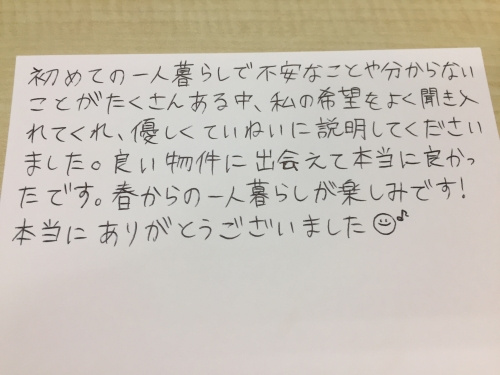 初めての一人暮らしで不安なことや分からない
ことがたくさんある中、私の希望をよく聞き入
れてくれ、優しくていねいに説明してください
ました。良い物件に出会えて本当に良かっ
たです。春からの一人暮らしが楽しみです!
本当にありがとうございました☺♪